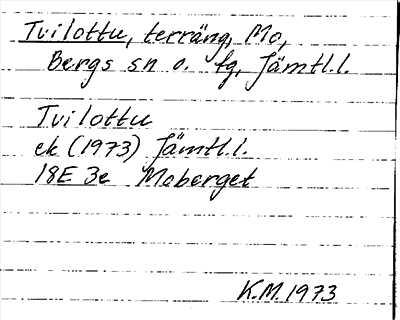 Tvilottu, terräng, Mo,
Bergs sn o. tg, Jämtl.l.
Tvilottu
ek (1973) Jämtl.l.
18E 3e Moberget
K.M. 1973